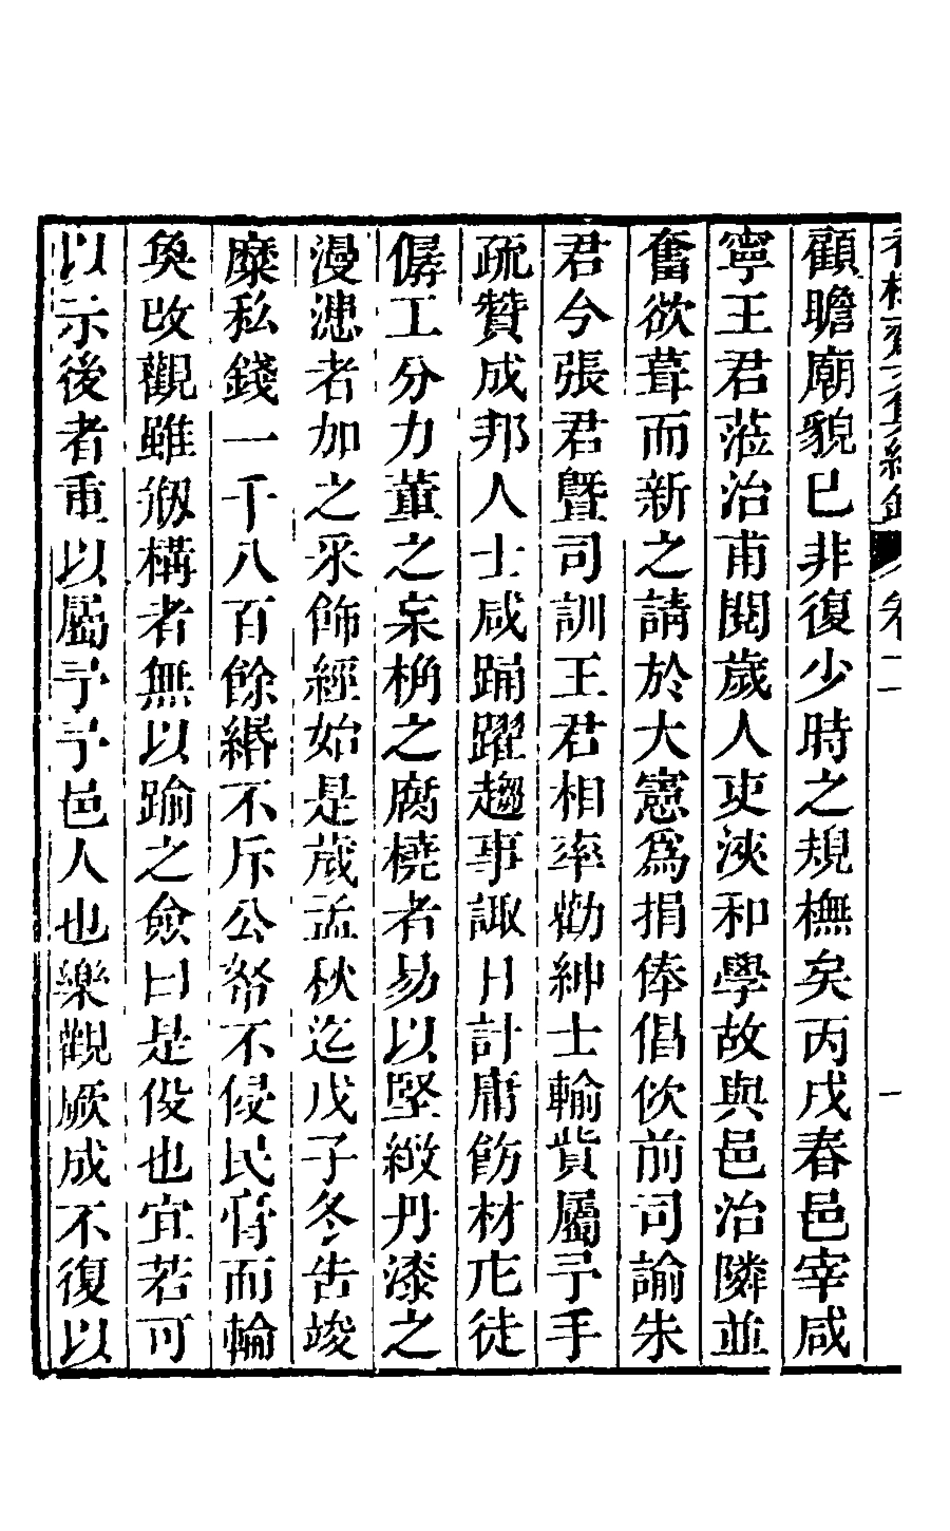 顧瞻廟貌已非復少時之規橅矣丙戌春邑宰咸
寧王君蒞治甫閱歲人吏浹和學故與邑治隣並
奮欲葺而新之請於大憲爲捐俸倡佽前司諭朱
君今張君曁司訓王君相率勸紳士輸貲屬予手
疏贊成邦人士咸踊躍趨事諏日計庸飭材庀徒
僝工分力董之宲桷之腐橈者易以堅緻丹漆之
漫漶者加之釆飾經始是歲孟秋迄戊子冬告竣
糜私錢一千八百餘緡不斥公帑不侵民膏而輪
奐改觀雖刱構者無以踰之僉曰是役也宜若可
以示後者重以屬予予邑人也樂觀厥成不復以